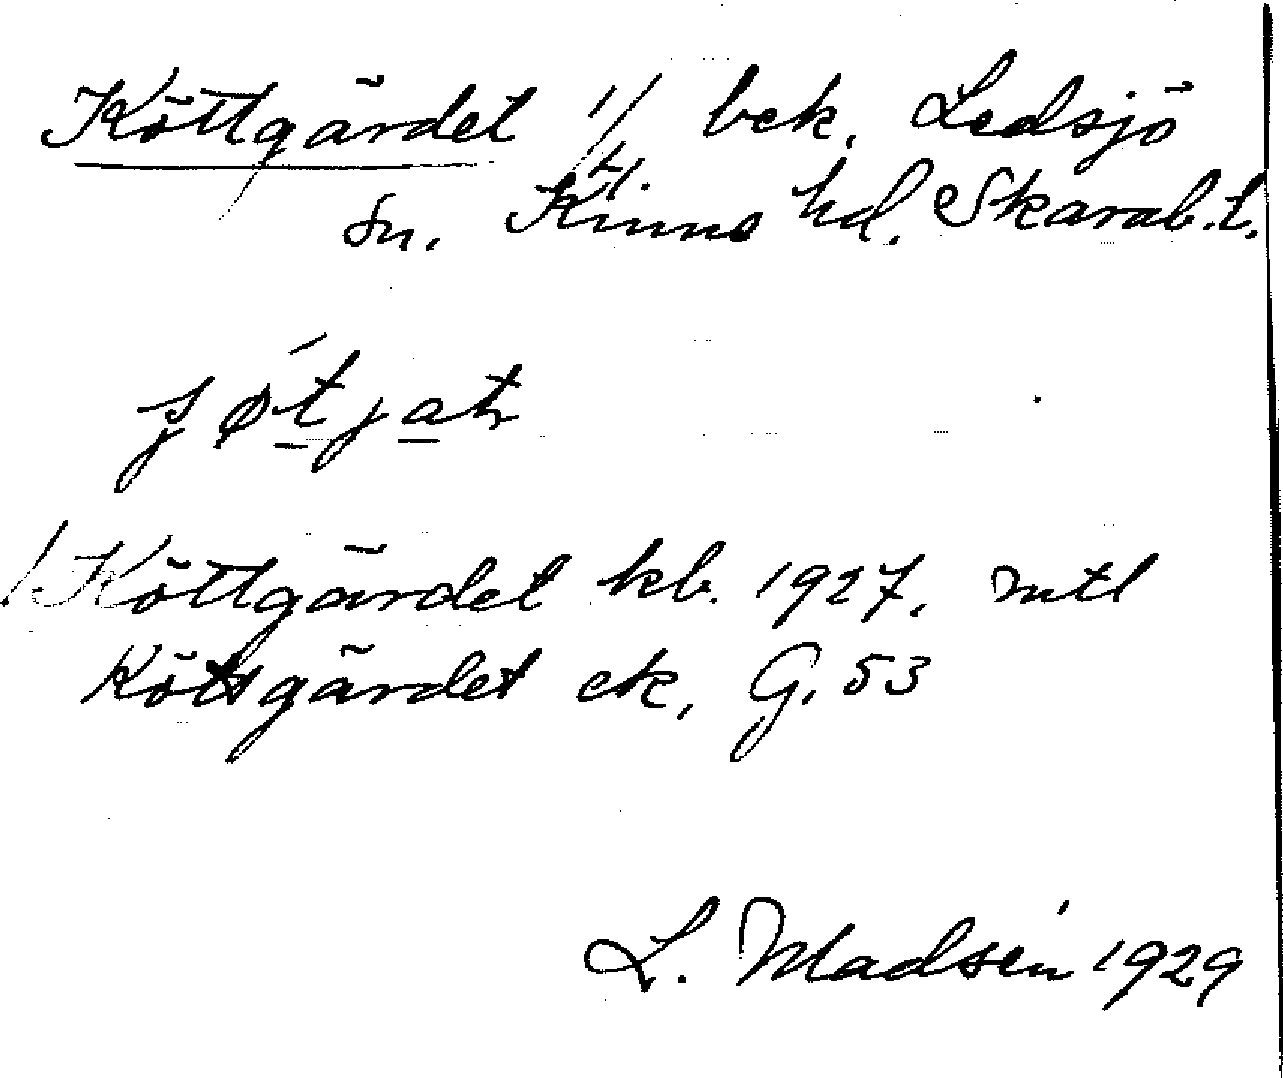 Köttgärdet 1/ bek. Ledsjö
tf.
sn. Kinne hd. Skarab. l.
1/ Köttgärdet kb. 1927. mtl
Köttsgärdet ek, G. 53
L. Madsén 1929